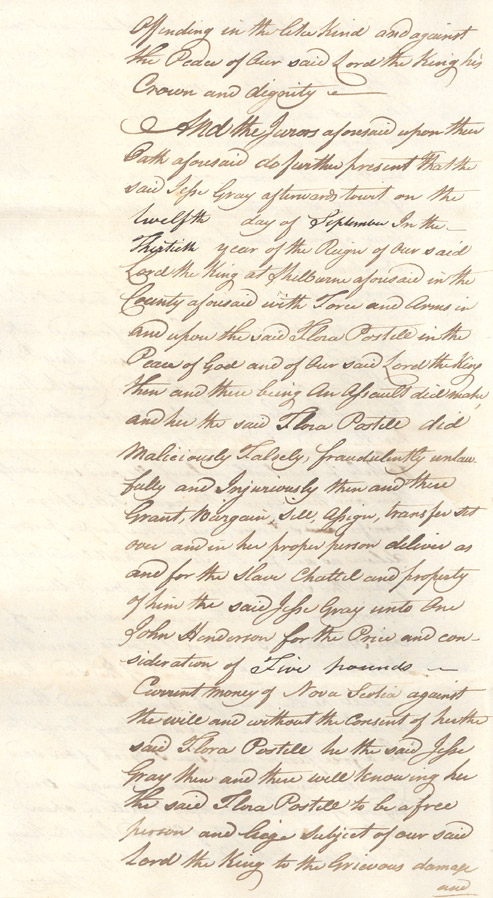 offending in the like kind and against
the Peace of Our said Lord the King his
Crown and dignity
And the Jurors aforesaid upon their
Oath aforesaid do further present that the
said Jesse Gray afterwards towit on the
twelfth day of September In the
Thirtieth year of the Reign of Our said
Lord the King at Shelburne aforesaid in the
County aforesaid with Force and Arms in
and upon the said Flora Postell in the
Peace of God and of Our said Lord the King
then and there being An Assault did make,
and her the said Flora Postell did
Maliciously Falsely, fraudulently unlaw
fully and Injuriously then and there
Grant, Bargain, Sell, Assign, transfer set
over and in her proper person deliver as
and for the Slave Chattel and property
of him the said Jesse Gray unto One
John Henderson for the Price and con-
sideration of Five pounds
Current money of Nova Scotia against
the will and without the Consent of her the
said Flora Postell he the said Jesse
Gray then and there well knowing her
the said Flora Postell to be a free
person and liege Subject of our said
Lord the King to the Grievous damage
and